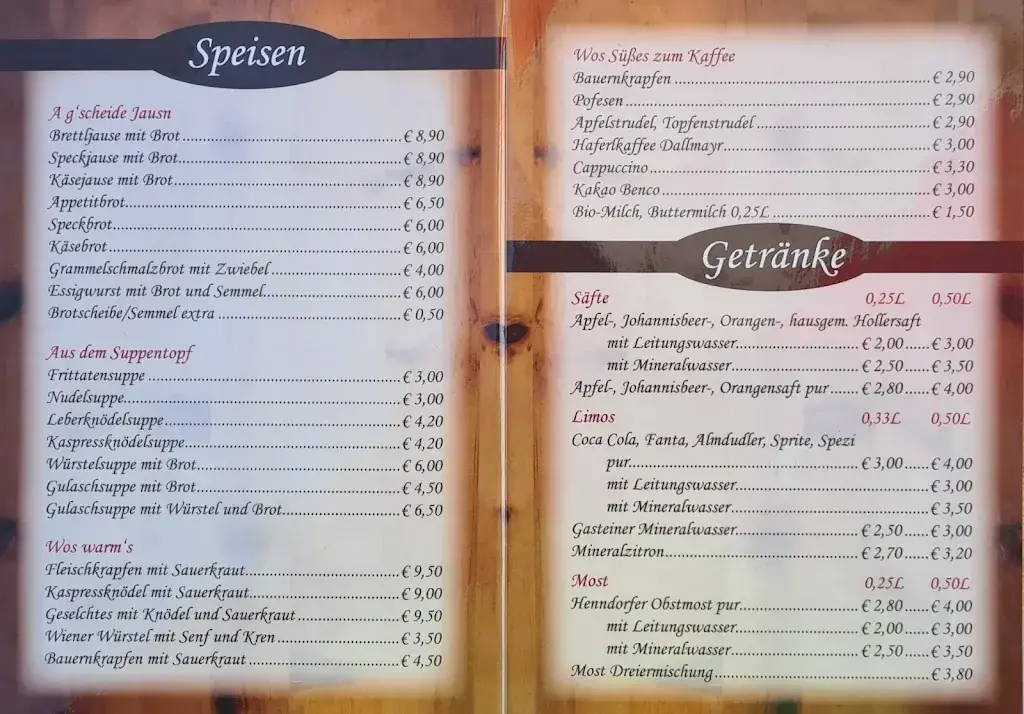 Speisen
A g'scheide Jausn
Brettljause mit Brot € 8,90
Speckjause mit Brot € 8,90
Käsejause mit Brot € 8,90
Appetitbrot € 6,50
Speckbrot € 6,00
Käsebrot € 6,00
Grammelschmalzbrot mit Zwiebel € 4,00
Essigwurst mit Brot und Semmel € 6,00
Brotscheibe/Semmel extra € 0,50
Aus dem Suppentopf
Frittatensuppe € 3,00
Nudelsuppe € 3,00
Leberknödelsuppe € 4,20
Kaspressknödelsuppe € 4,20
Würstelsuppe mit Brot € 6,00
Gulaschsuppe mit Brot € 4,50
Gulaschsuppe mit Würstel und Brot € 6,50
Wos warm's
Fleischkrapfen mit Sauerkraut € 9,50
Kaspressknödel mit Sauerkraut € 9,00
Geselchtes mit Knödel und Sauerkraut € 9,50
Wiener Würstel mit Senf und Kren € 3,50
Bauernkrapfen mit Sauerkraut € 4,50
Wos Süßes zum Kaffee
Bauernkrapfen € 2,90
Pofesen € 2,90
Apfelstrudel, Topfenstrudel € 2,90
Haferlkaffee Dallmayr € 3,00
Cappuccino € 3,30
Kakao Benco € 3,00
Bio-Milch, Buttermilch 0,25L € 1,50
Getränke
Säfte 0,25L 0,50L
Apfel-, Johannisbeer-, Orangen-, hausgem. Hollersaft
mit Leitungswasser € 2,00 € 3,00
mit Mineralwasser € 2,50 € 3,50
Apfel-, Johannisbeer-, Orangensaft pur € 2,80 € 4,00
Limos 0,33L 0,50L
Coca Cola, Fanta, Almdudler, Sprite, Spezi
pur € 3,00 € 4,00
mit Leitungswasser € 3,00
mit Mineralwasser € 3,50
Gasteiner Mineralwasser € 2,50 € 3,00
Mineralzitron € 2,70 € 3,20
Most 0,25L 0,50L
Henndorfer Obstmost pur € 2,80 € 4,00
mit Leitungswasser € 2,00 € 3,00
mit Mineralwasser € 2,50 € 3,50
Most Dreiermischung € 3,80